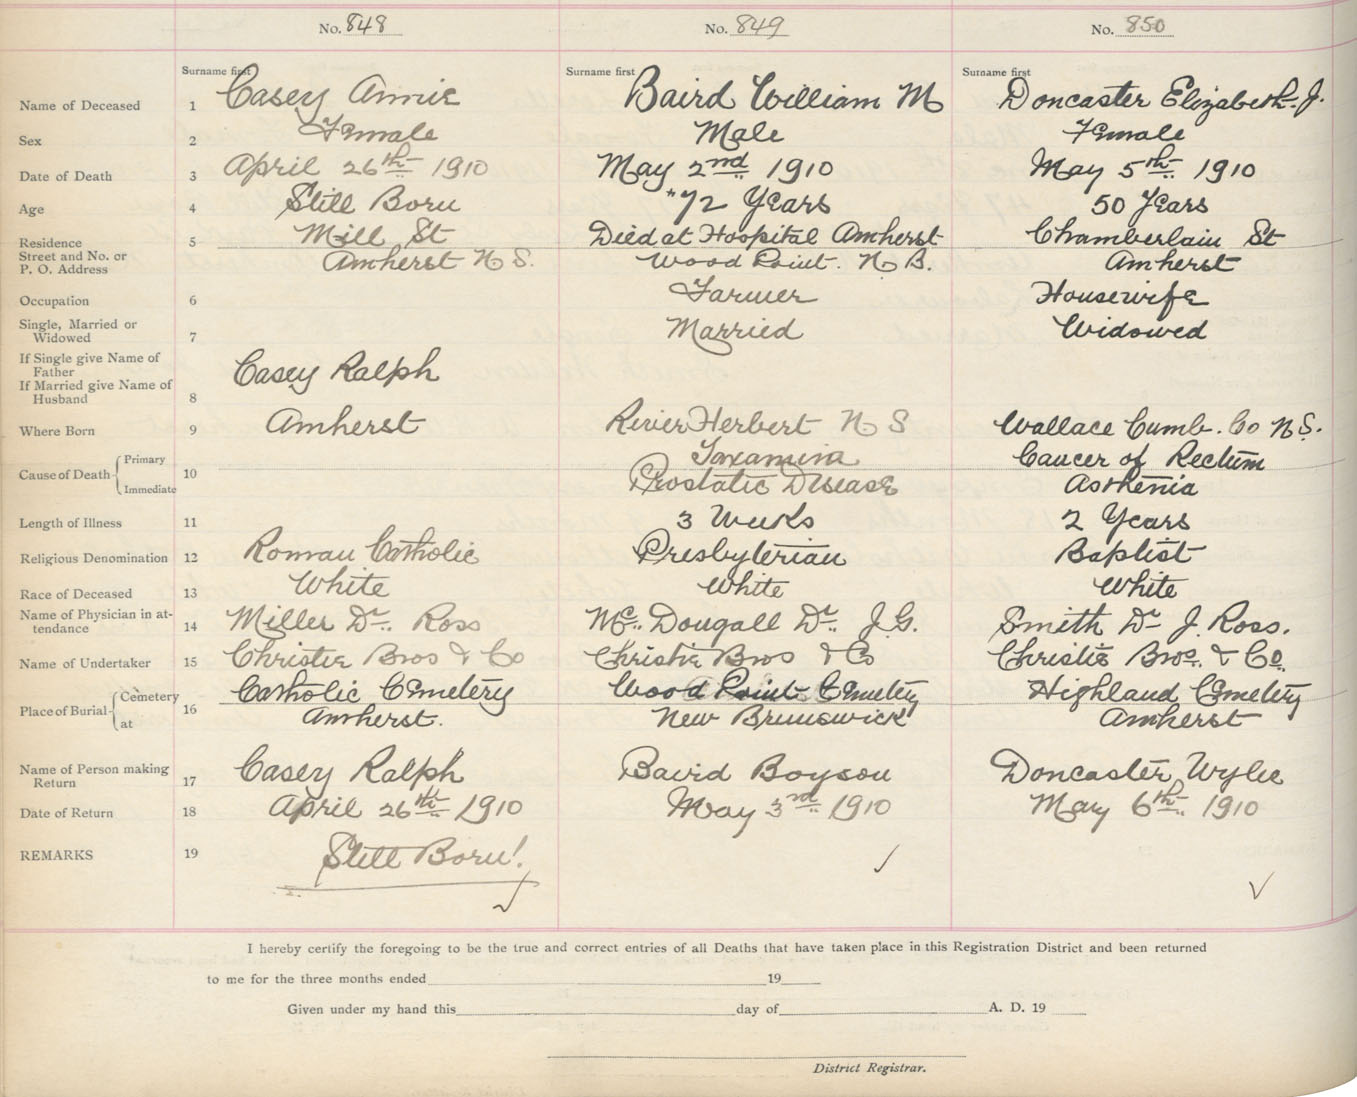 No. 848 No. 849 No. 850
Surname first Surname first Surname first
Name of Deceased 1 Casey Annie Baird William M Doncaster Elizabeth J.
Sex 2 Female Male Female
Date of Death 3 April 26th 1910 May 2nd 1910 May 5th 1910
Age 4 Still Born "72 Years 50 Years
Residence 5 Mill St Died at Hospital Amherst Chamberlain St
Street and No. or
P. O. Address Amherst N S. Wood Point. N B. Amherst
Occupation 6 Farmer Housewife
Single, Married or
Widowed 7 Married Widowed
If Single give Name of
Father Casey Ralph
If Married give Name of
Husband 8
Where Born 9 Amherst River Herbert N S Wallace Cumb. Co N S.
Cause of Death Primary 10 Toxamina Cancer of Rectum
Immediate Prostatic Disease Asthenia
Length of Illness 11 3 Weeks 2 Years
Religious Denomination 12 Roman Catholic Presbyterian Baptist
Race of Deceased 13 White White White
Name of Physician in at-
tendance 14 Miller Dr. Ross Mc. Dougall Dr. J.G. Smith Dr J. Ross.
Name of Undertaker 15 Christie Bros & Co Christie Bros & Co Christie Bros. & Co.
Place of Burial Cemetery 16 Catholic Cemetery Wood Point Cemetery Highland Cemetery
at Amherst. New Brunswick Amherst
Name of Person making
Return 17 Casey Ralph Baird Boyson Doncaster, Wylie
Date of Return 18 April 26th 1910 May 3rd 1910 May 6th 1910
REMARKS 19 Still Born!
I hereby certify the foregoing to be the true and correct entries of all Deaths that have taken place in this Registration District and been returned
to me for the three months ended 19
Given under my hand this day of A. D. 19
District Registrar.